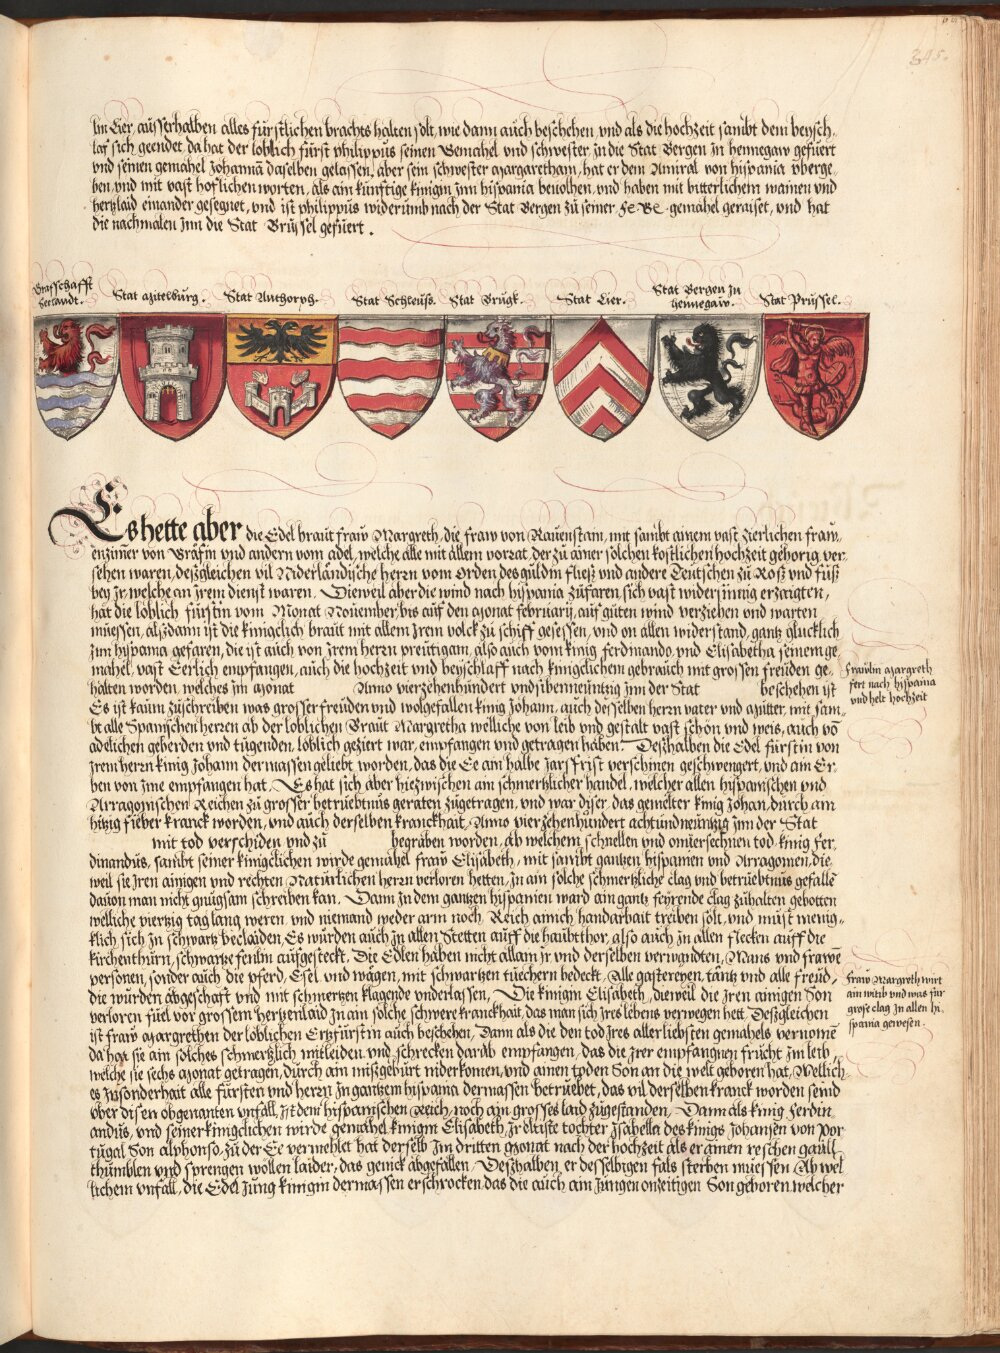 345.
Im Lier, ausserhalben alles fürstlichen brachts halten solt, wie dann auch beschehen, vnd als die hochzeit sambt dem beysch,,
laf sich geendet, da hat der loblich fürst philippus seinen Gemahel vnd schwester, in die Stat Bergen in hennegaw gefuert
vnd seinen gemahel Johannā daselben gelassen, aber sein schwester Margaretham, hat er dem Amiral von hispania vberge,,
ben, vnd mit vast hoflichen worten, als ain künftige künigin inn hispania beuolhen, vnd haben mit bitterlichem wainen vnd
hertzlaid einander gesegnet, vnd ist philippus widerumb nach der Stat Bergen zu seiner gemahel geraiset, vnd hat
die nachmalen inn die Stat Brüssel gefuert.
Grafschafft
Seelandt.
Stat Mitelburg.
Stat Anthorph.
Stat Schleuss.
Stat Brugk.
Stat Lier.
Stat Bergen In
hennegaw.
Stat Prüssel.
Es hette aber die Edel braut fraw Margreth, die fraw von Rauenstain, mit sambt ainem vast zierlichen fraw,,
enzimer von Gräfin vnd andern vom adel, welche alle mit allem vorrat, der zu ainer solchen kostlichen hochzeit gehorig, ver,,
sehen waren, deszgleichen vil Niderländische herrn vom Orden des guldin fliesz vnd andere Teutschen zu Rosz vnd fusz
bey Ir, welche an Irem dienst waren. Dieweil aber die wind nach hispania zufaren, sich vast widersinnig erzaigten,
hat die loblich fürstin vom Monat Nouember, bis auf den Monat february, auf guten wind verziehen vnd warten
müessen, alszdann ist die künigclich braut mit allem Irem volck zu schiff gesessen, vnd on allen widerstand, gantz glucklich
Inn hispania gefaren, die ist auch von Irem herrn preutigam, also auch vom künig ferdinando, vnd Elisabetha seinem ge
mahel, vast Eerlich empfangen, auch die hochzeit vnd beyschlaff nach künigclichem gebrauch mit grossen freuden ge,,
halten worden, welches im Monat Anno vierzehenhundert vnd sibenneuntzig inn der Stat beschehen ist
Es ist kaum zuschreiben was grosser freuden vnd wolgefallen künig Johann, auch desselben herrn vater vnd Muter, mit sam,,
bt alle Spanischen herren ab der loblichen Braut Margretha, welliche von leib vnd gestalt vast schön vnd weis, auch vō
adelichen geberden vnd tugenden, loblich geziert war, empfangen vnd getragen haben. Deszhalben die Edel fürstin von
Irem herrn künig Johann dermassen geliebt worden, das die Ee ain halbe Jarsfrist verschinen geschwengert, vnd ain Er,,
ben von Ime empfangen hat, Es hat sich aber hiezwischen ain schmertzlicher handel, welcher allen hispanischen vnd
Arragonischen Reichen zu grosser betruebtnus geraten zugetragen, vnd war diser, das gemelter künig Johan, durch ain
hitzig fieber kranck worden, vnd auch derselben kranckhait, Anno vierzehenhundert achtundneuntzig inn der Stat
mit tod verschiden vnd zu begraben worden, ab welchem schnellen vnd onuersechnen tod, künig fer,,
dinandus, sambt seiner künigclichen wirde gemahel fraw Elisabeth, mit sambt gantzen hispanien vnd Arragonien, die,,
weil sie Iren ainigen vnd rechten Naturlichen herrn verloren hetten, in ain solche schmertzliche clag vnd betruebtnus gefallē
dauon man nicht gnuigsam schreiben kan. Dann in dem gantzen hispanien ward ain gantz feyrende clag zuhalten gebotten
welliche viertzig tag lang weren, vnd niemand weder arm noch Reich ainich handarbait treiben solt, vnd must menig,,
klich sich in schwartz beclaiden, Es wurden auch in allen Stetten auff die haubtthor, also auch in allen flecken auff die
kirchenthurn, schwartze fenlin aufgesteckt, Die Edlen haben nicht allain ir vnd derselben verwandten, Mans vnd frawē
personen, sonder auch die pferd, Esel vnd wägen, mit schwartzen tuechern bedeckt, Alle gastereyen, täntz vnd alle freud,,
die wurden abgeschaft vnd mit schmertzen klagende vnderlassen, Die künigin Elisabeth, dieweil die Iren ainigen Son
verloren fuel vor grossem hertzenlaid in ain solche schwere kranckhait, das man sich Ires lebens verwegen hett, Deszgleichen
ist fraw Margrethen der loblichen Ertzfürstin auch beschehen, Dann als die den tod Ires allerliebsten gemahels vernomē
da hat sie ain solches schmertzlich mitleiden vnd schrecken darab empfangen, das die Irer empfangnen frucht im leib,
welche sie sechs Monat getragen, durch ain miszgeburt niderkomen, vnd ainen toden Son an die welt geboren hat, Wellich
es insonderhait alle fürsten vnd herrn in gantzem hispania dermassen betruebet, das vil derselben kranck worden seind
ober disen obgenanten vnfall, ist dem hispanischen Reich, noch ain grosses laid zugestanden, Dann als künig ferdin
andus, vnd seiner künigclichen wirde gemahel künigin Elisabeth, Ir eltiste tochter Isabella des künigs Johansen von Por
tugal Son alphonso, zu der Ee vermehlet hat derselb Im dritten Monat nach der hochzeit als er ainen reschen gaull
thumblen vnd sprengen wollen laider, das genick abgefallen, Deszhalben er desselbigen fals sterben müessen Ab wel
lichem vnfall, die Edel Jung künigin dermassen erschrocken das die auch ain Jungen onzeitigen Son geboren, welcher
Fraülin Margreth
fert nach hispania
vnd helt hochzeit
Fraw Margreth wirt
ain witib vnd was fur
grosse clag in allen hi,,
spania gewesen.